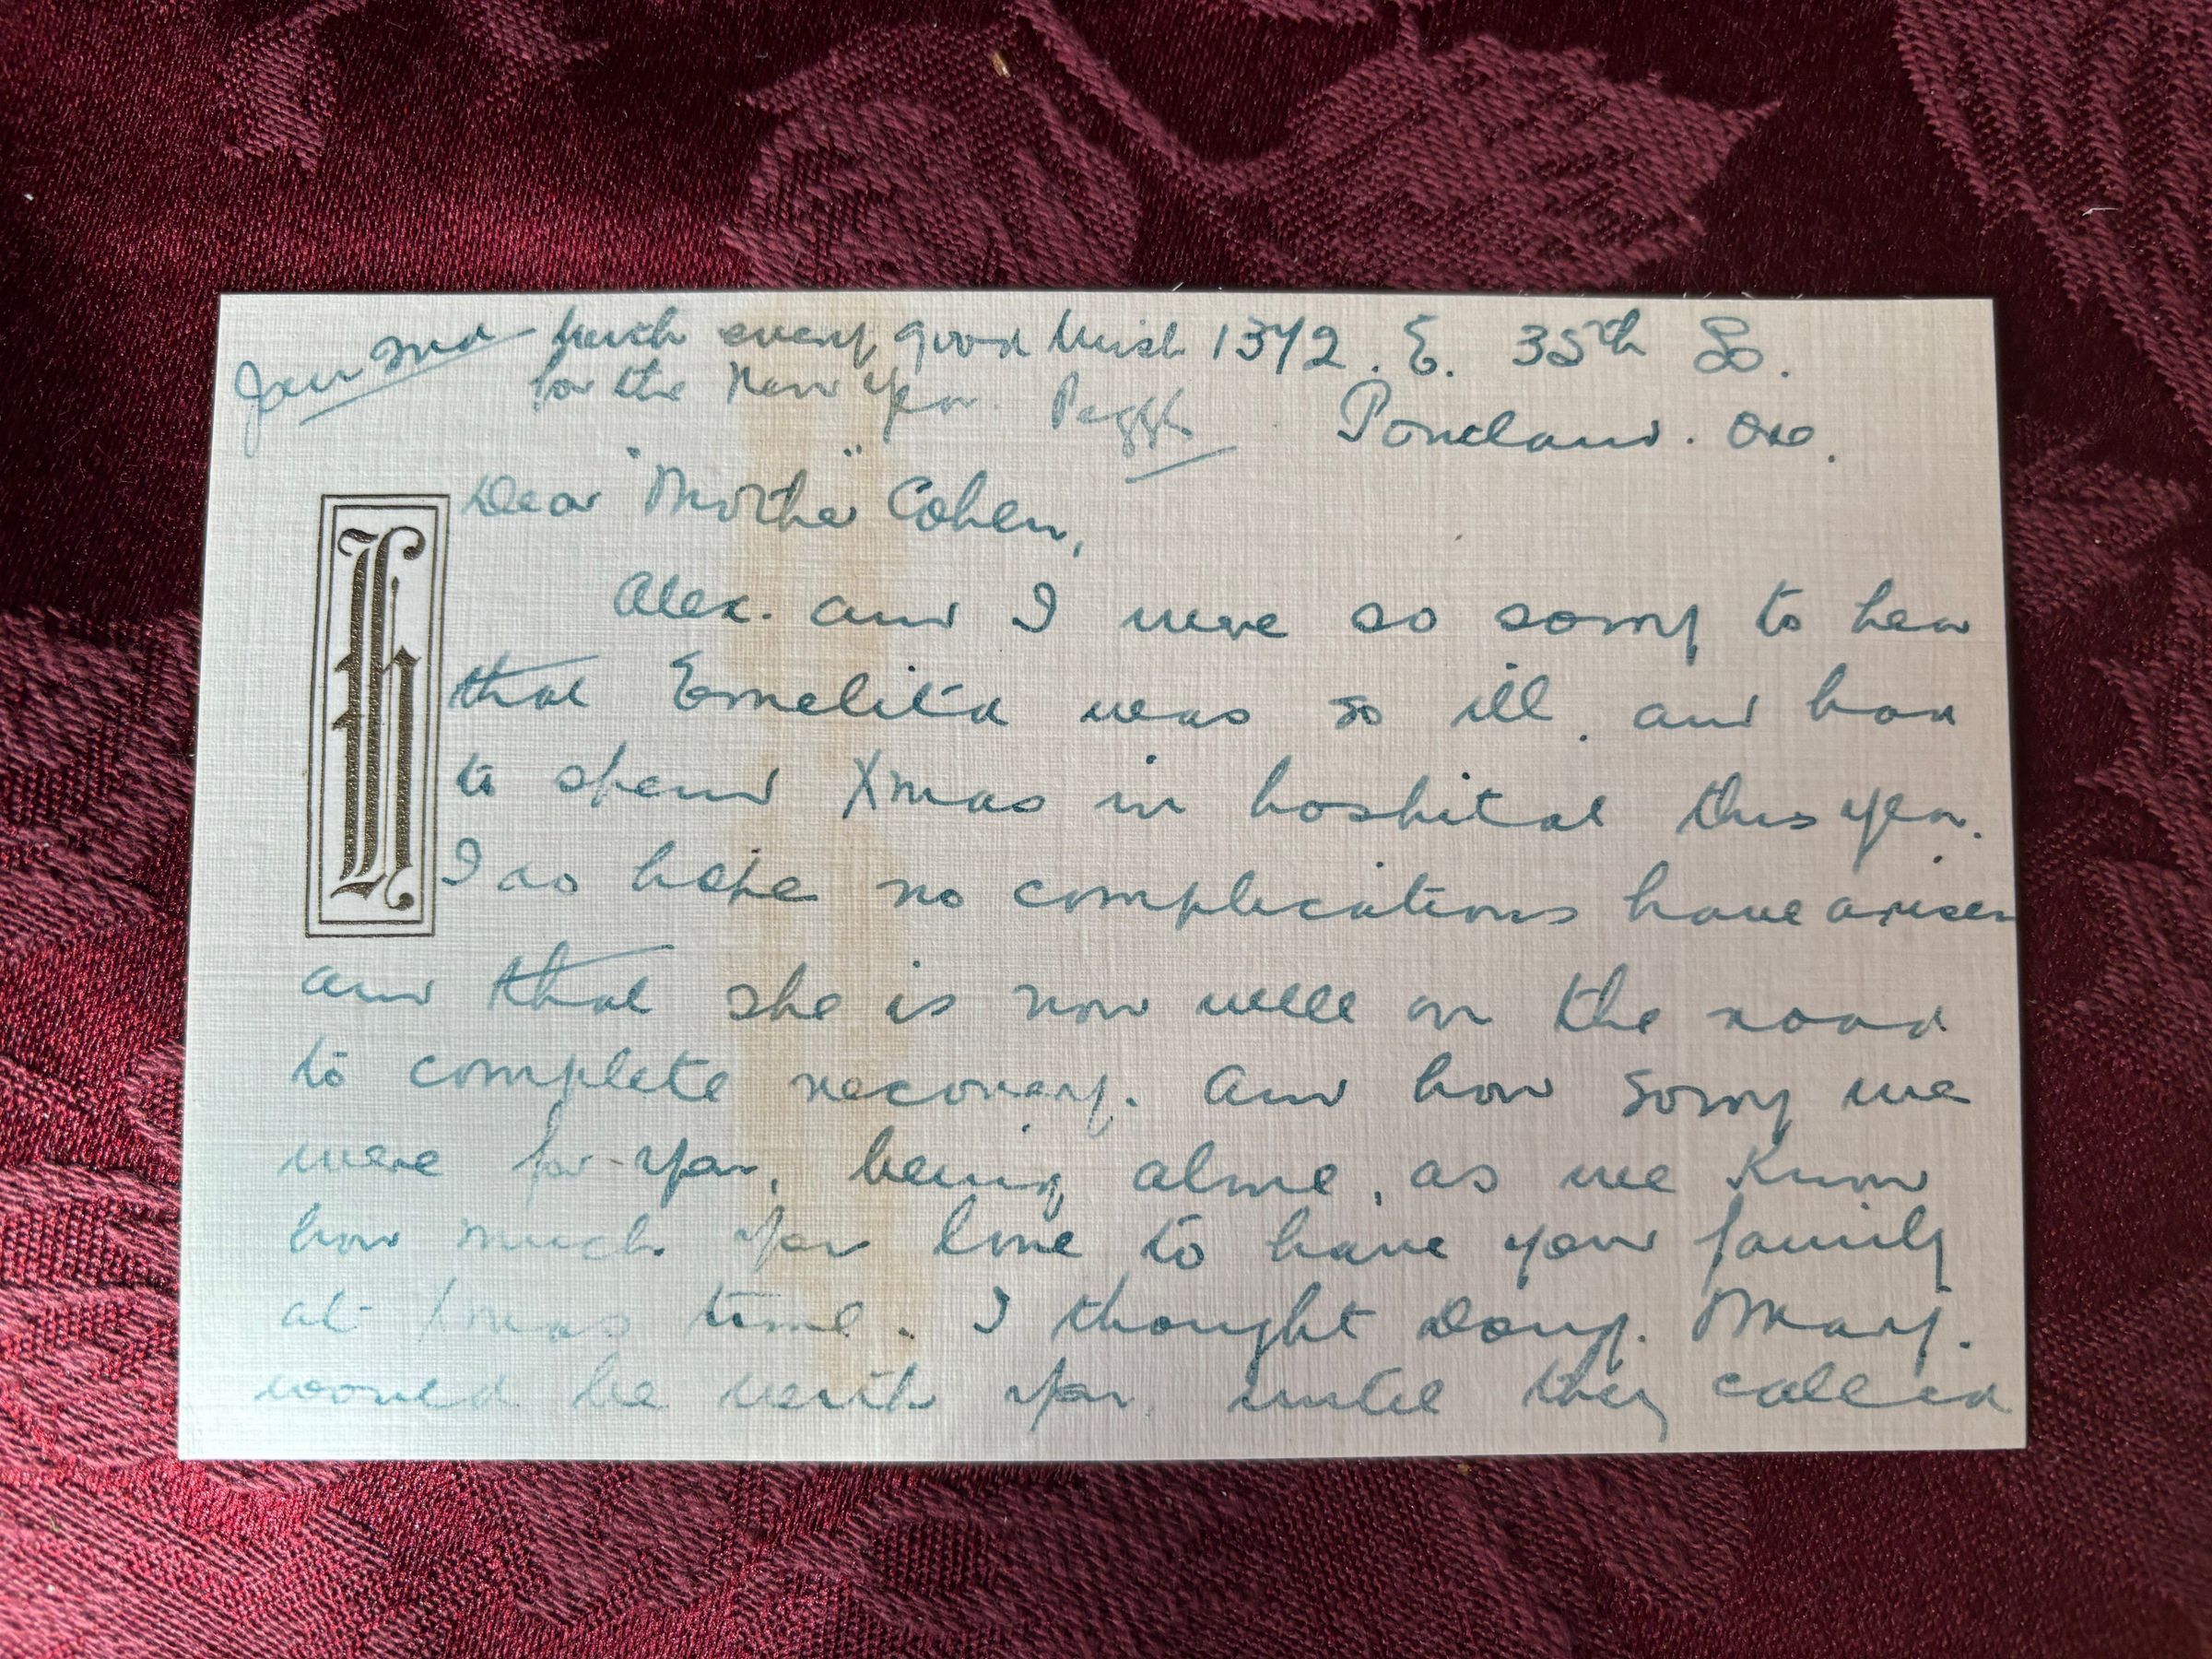 Jan 2nd
with every good wish
for the New Year. Peggy
1372. E. 35th St.
Portland. Ore.
Dear "Mother" Cohen,
H
Alex. and I were so sorry to hear
that Emelita was so ill, and had
to spend Xmas in hospital this year.
I do hope no complications have arisen
and that she is now well on the road
to complete recovery. And how sorry we
were for you, being alone, as we know
how much you love to have your family
at Xmas time. I thought Doug. Mary.
would be with you, until they called